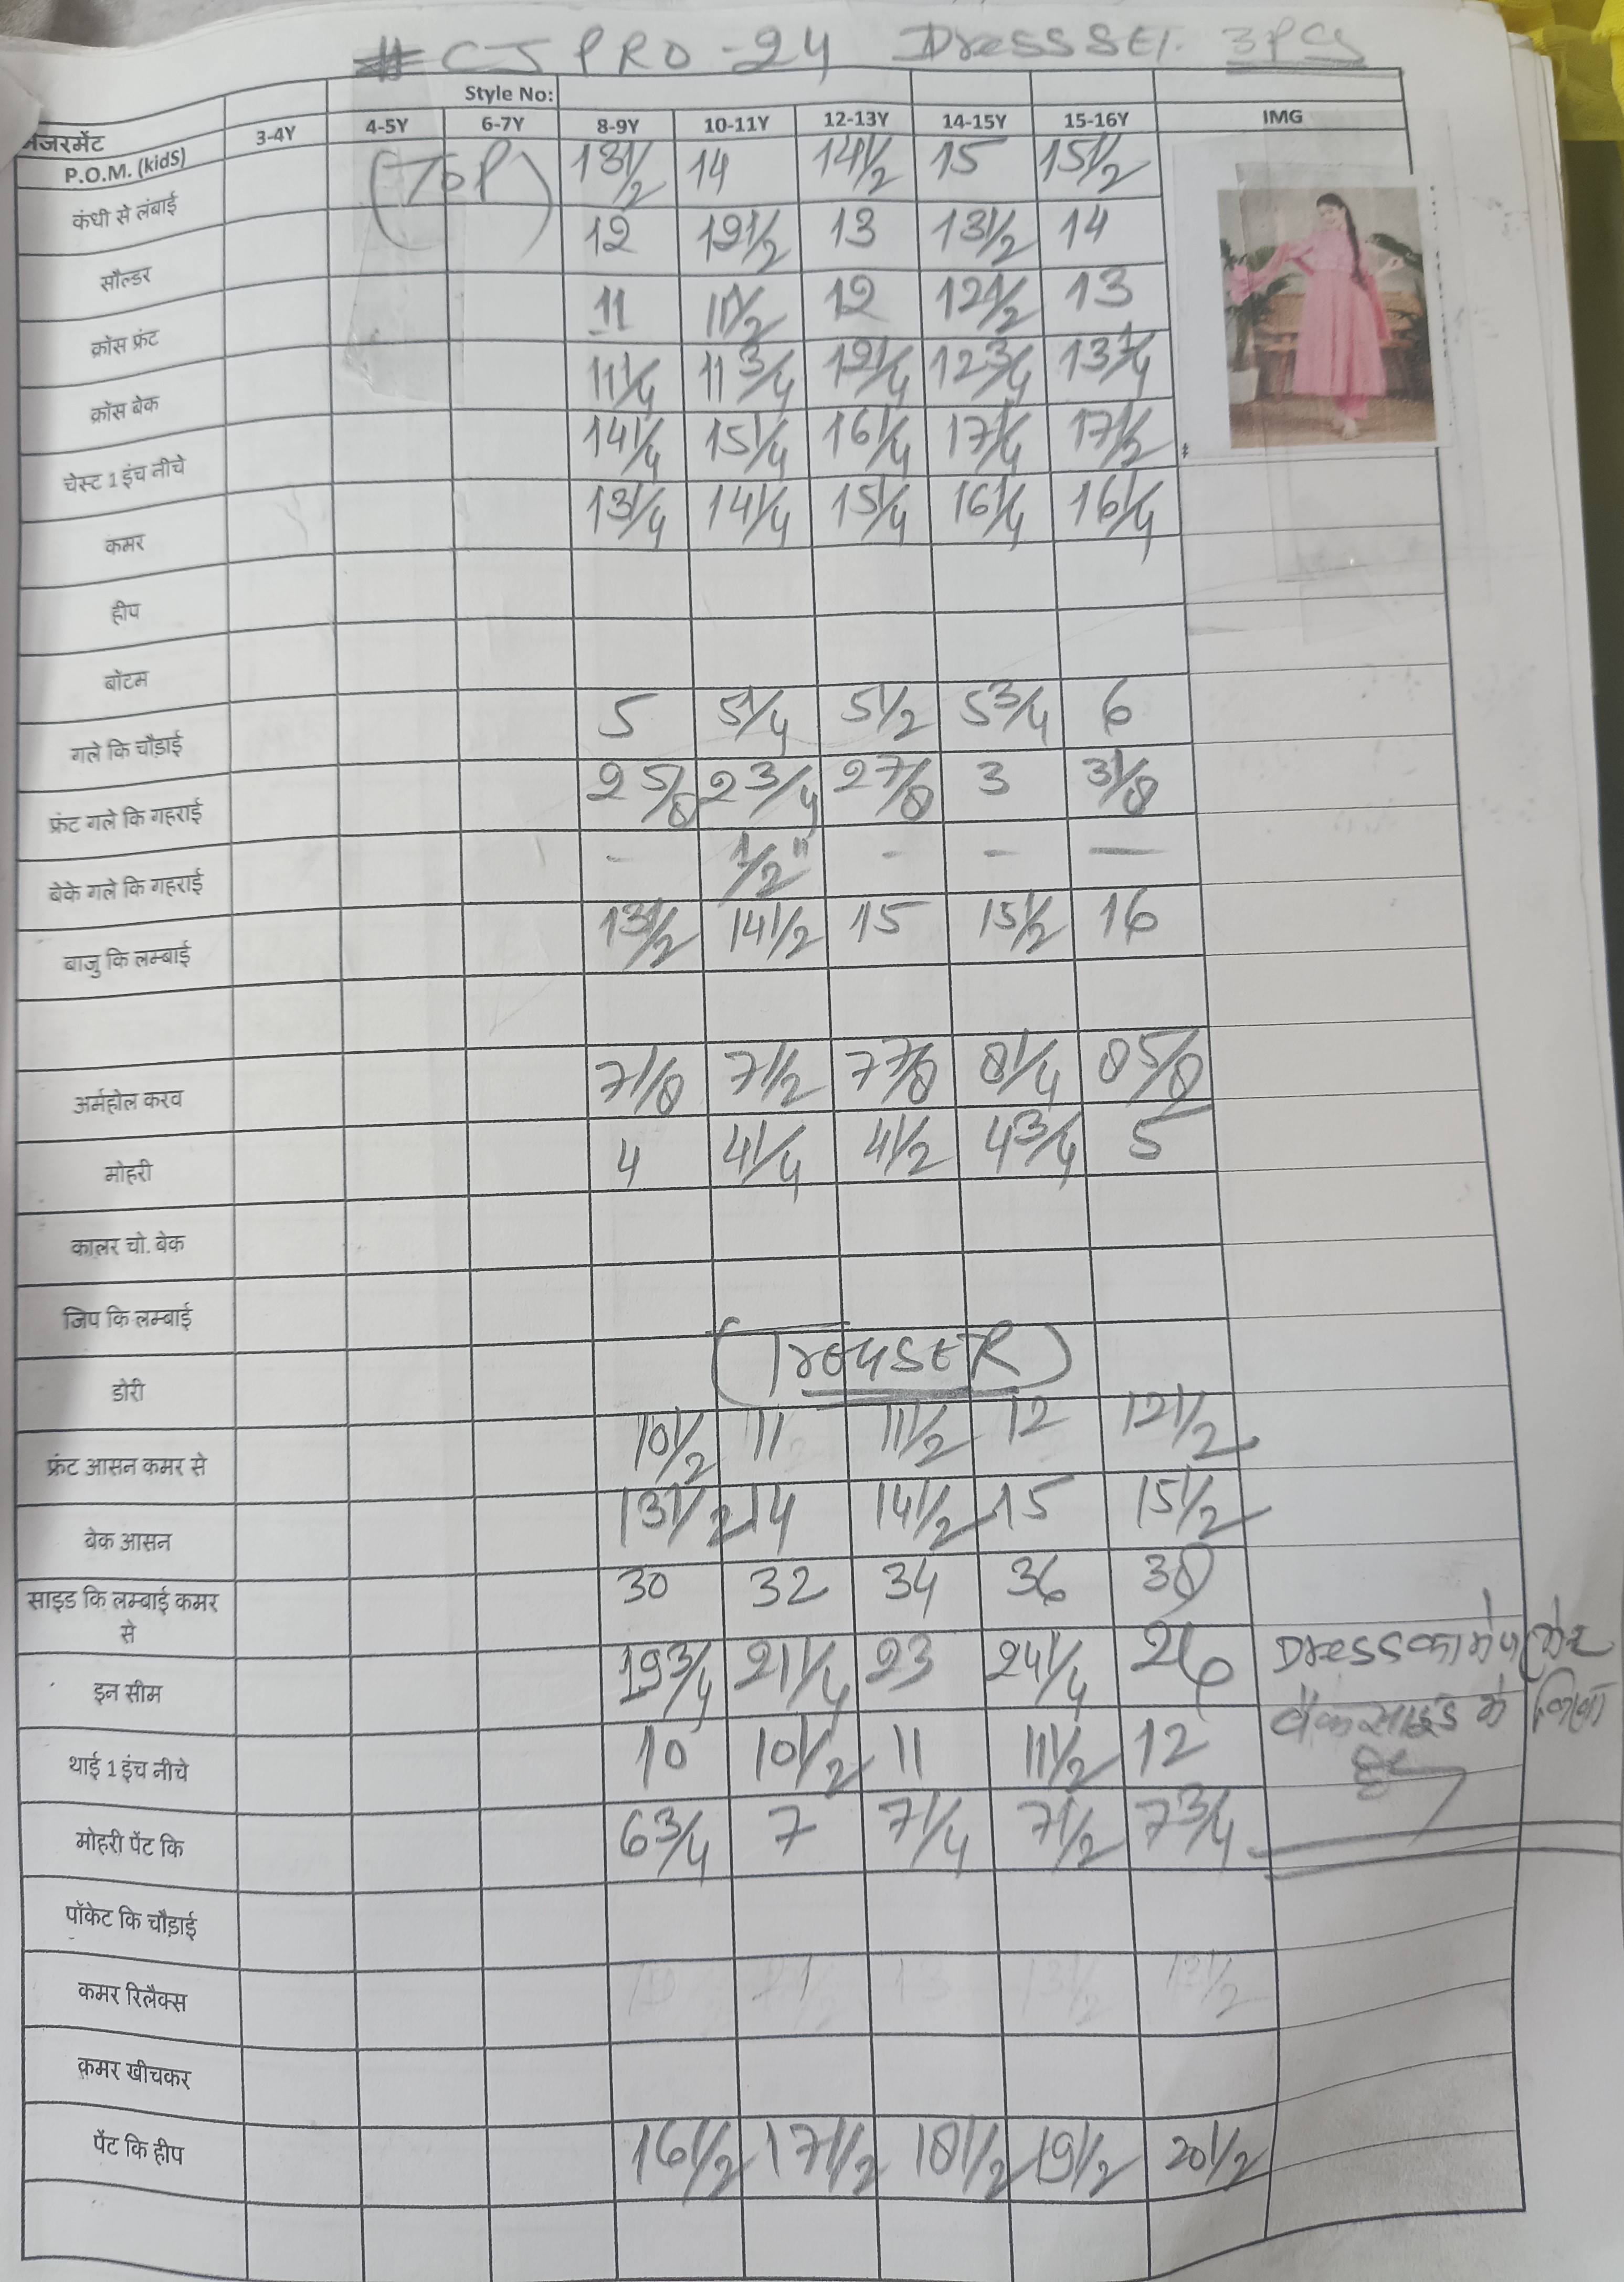 # CJ PRO-24 Dress SET. 3PCS
Style No:
मेजरमेंट 3-4Y 4-5Y 6-7Y 8-9Y 10-11Y 12-13Y 14-15Y 15-16Y IMG
P.O.M. (kidS)
(TOP)
कंधी से लंबाई 13 1/2 14 14 1/2 15 15 1/2
सौल्डर 12 12 1/2 13 13 1/2 14
क्रॉस फ्रंट 11 11 1/2 12 12 1/2 13
क्रॉस बेक 11 1/4 11 3/4 12 1/4 12 3/4 13 1/4
चेस्ट 1 इंच नीचे 14 1/4 15 1/4 16 1/4 17 1/4 17 1/2
कमर 13 1/4 14 1/4 15 1/4 16 1/4 16 1/4
हीप
बॉटम
गले कि चौड़ाई 5 5 1/4 5 1/2 5 3/4 6
फ्रंट गले कि गहराई 2 5/8 2 3/4 2 7/8 3 3 1/8
बेके गले कि गहराई - 1/2" - - -
बाजु कि लम्बाई 13 1/2 14 1/2 15 15 1/2 16
अर्महोल करव 7 1/8 7 1/2 7 7/8 8 1/4 8 5/8
मोहरी 4 4 1/4 4 1/2 4 3/4 5
कालर चो. बेक
जिप कि लम्बाई
(TrouSER)
डोरी
फ्रंट आसन कमर से 10 1/2 11 11 1/2 12 12 1/2
बेक आसन 13 1/2 14 14 1/2 15 15 1/2
साइड कि लम्बाई कमर से 30 32 34 36 38
इन सीम 19 3/4 21 1/4 23 24 1/4 26
Dress का मेजरमेंट
बैक साइड में लिखा
है
थाई 1 इंच नीचे 10 10 1/2 11 11 1/2 12
मोहरी पेंट कि 6 3/4 7 7 1/4 7 1/2 7 3/4
पॉकेट कि चौड़ाई
कमर रिलैक्स
कमर खीचकर
पेंट कि हीप 16 1/2 17 1/2 18 1/2 19 1/2 20 1/2